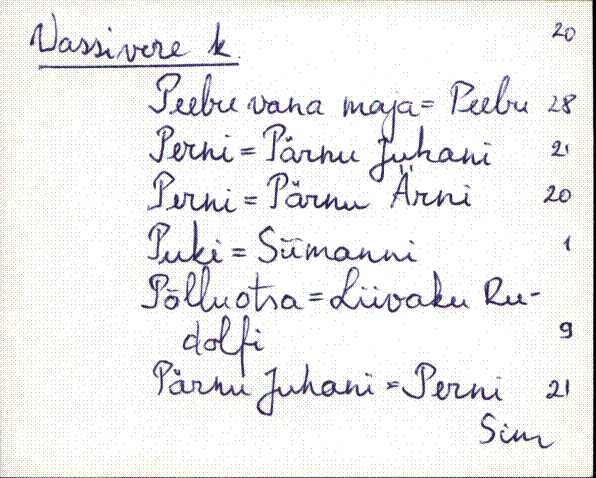 Vassivere k. 20
Peebu vana maja = Peebu 28
Perni = Pärnu Juhani 21
Perni = Pärnu Ärni 20
Puki = Siimanni 1
Põlluotsa = Liivaku Ru-
dolfi 9
Pärnu Juhani = Perni 21
Sim